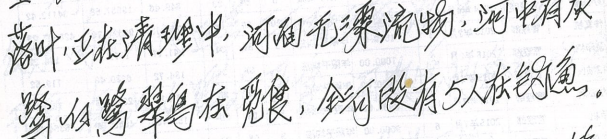 落叶,正在清理中,河面无漂流物,河中有灰
鹭、白鹭、翠鸟在觅食,全河段有5人在钓鱼。